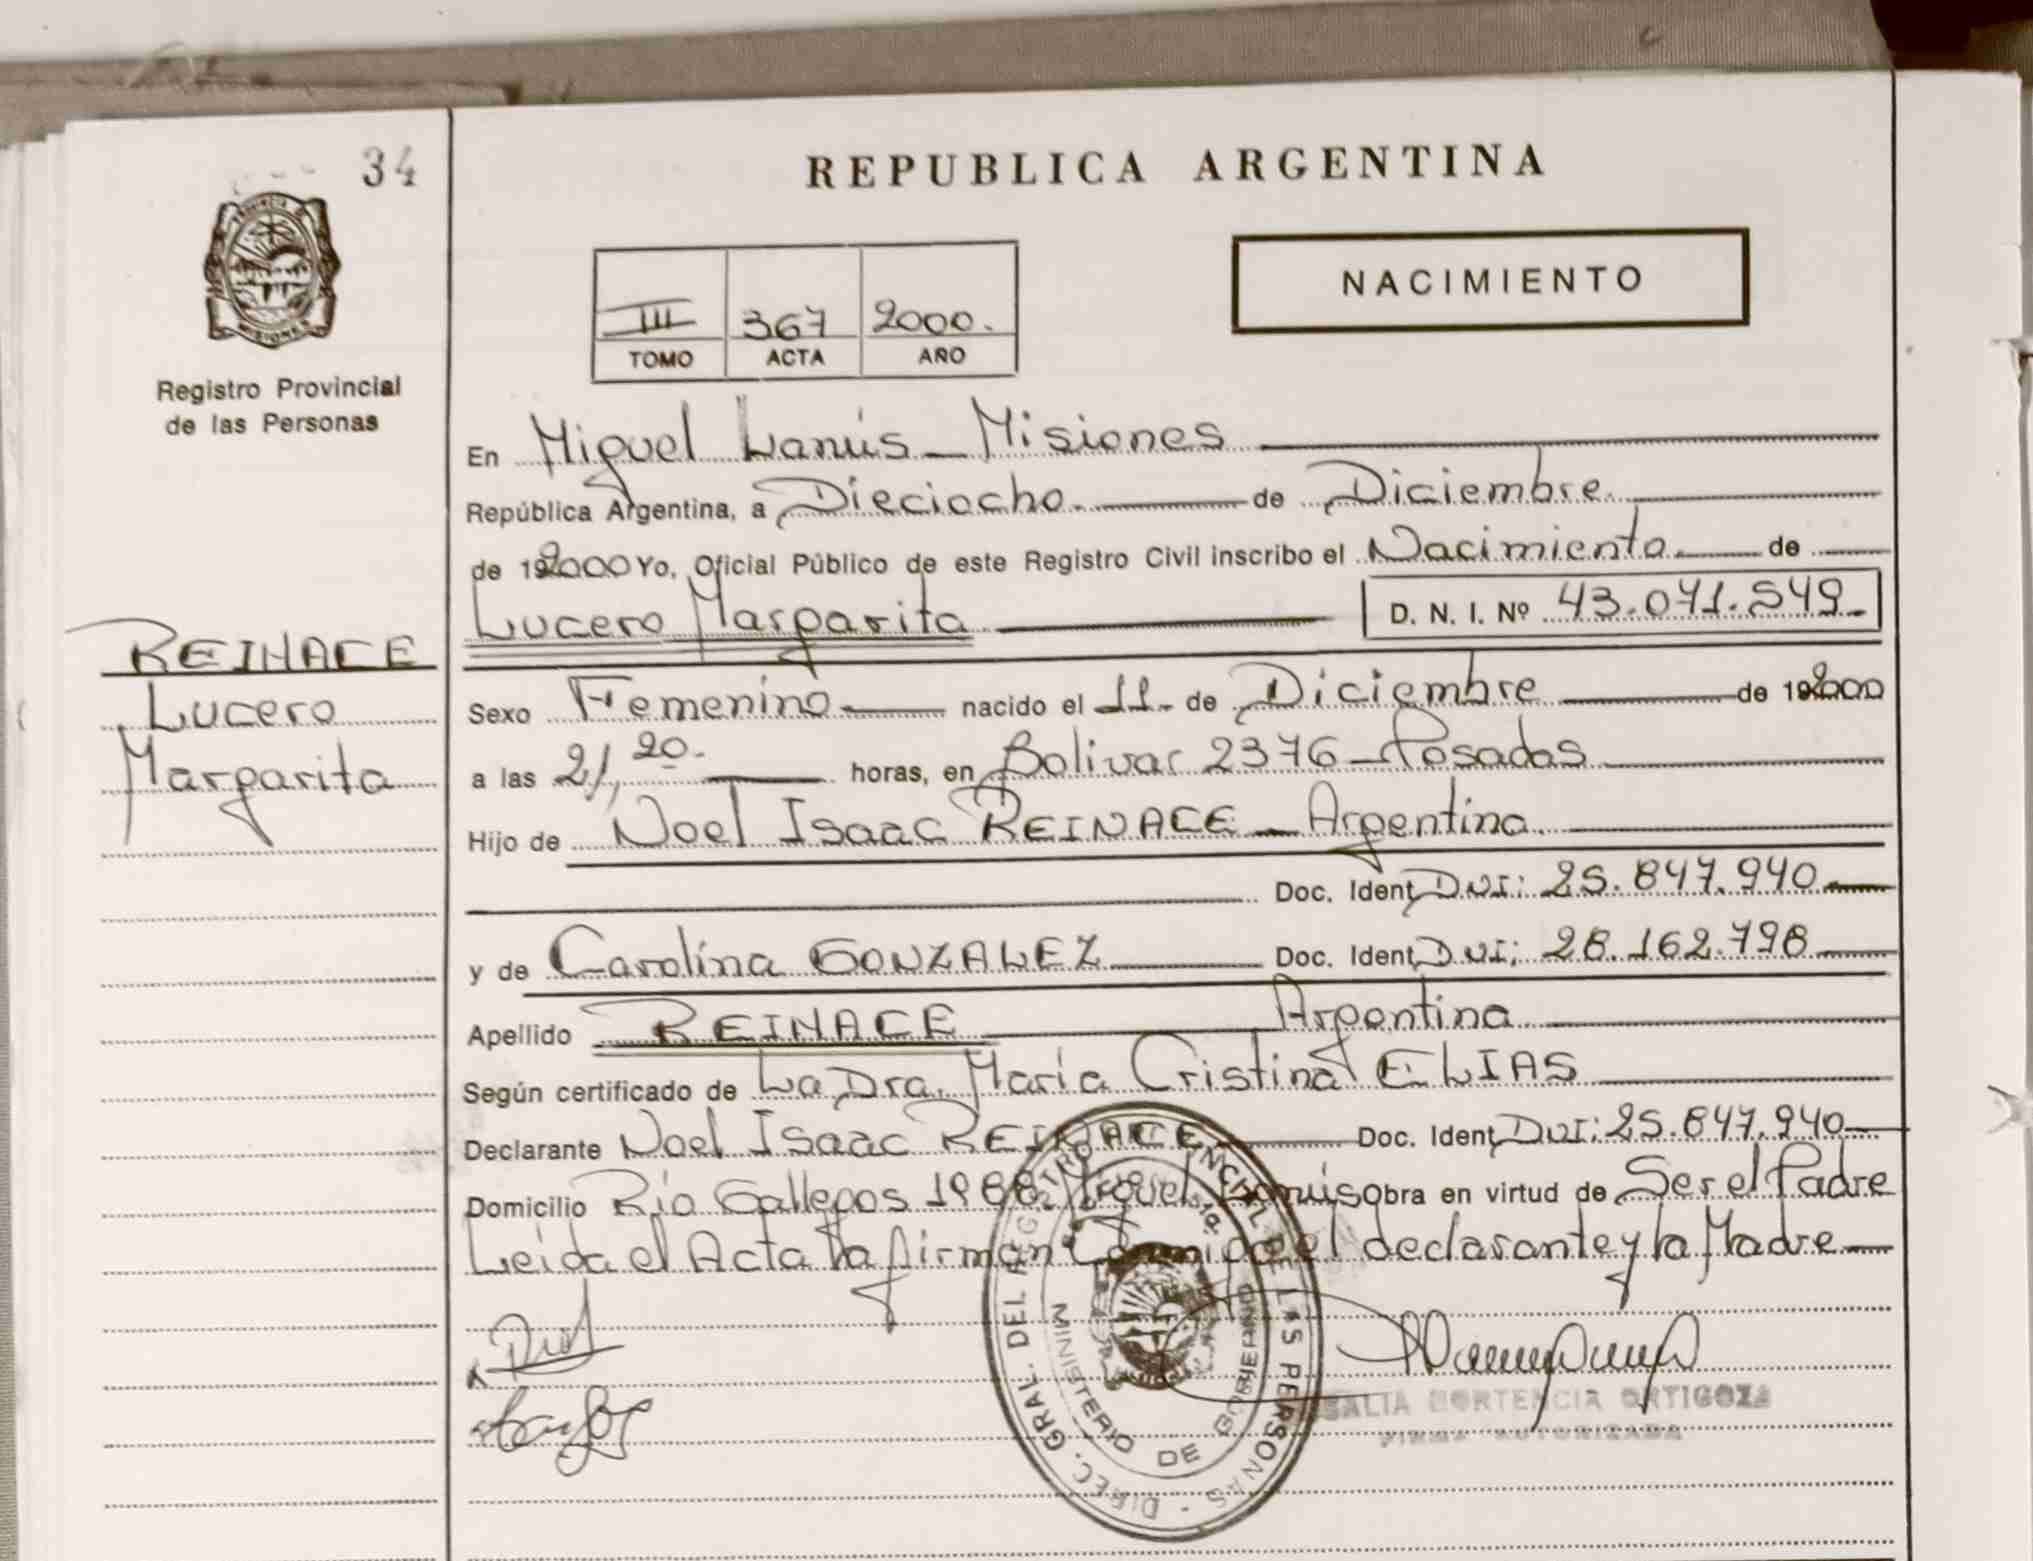 34
REPUBLICA ARGENTINA
PROVINCIA DE
MISIONES
Registro Provincial
de las Personas
NACIMIENTO
III 367 2000.
TOMO ACTA AÑO
En Miguel Lanús - Misiones
República Argentina, a Dieciocho. de Diciembre.
de 192000 Yo, Oficial Público de este Registro Civil inscribo el Nacimiento. de
Lucero Margarita D. N. I. Nº 43.071.549-
REINACE
Lucero
Margarita
Sexo Femenino nacido el 11- de Diciembre de 192000
a las 21,20. horas, en Bolivar 2376 - Posadas
Hijo de Noel Isaac REINACE - Argentino.
Doc. Ident. DNI: 25.847.940
y de Carolina GONZALEZ Doc. Ident. DNI: 28.162.798
Apellido REINACE Argentina
Según certificado de La Dra. María Cristina ELIAS
Declarante Noel Isaac REINACE Doc. Ident. DNI: 25.847.940
Domicilio Río Gallegos 1988 Miguel Lanús obra en virtud de Ser el Padre
Leída el Acta la firman Conmigo el declarante y la Madre
DIREC. GRAL. DEL REGISTRO PROVINCIAL DE LAS PERSONAS -
MINISTERIO DE GOBIERNO
HORTENCIA ORTIGOZA
FIRMA AUTORIZADA